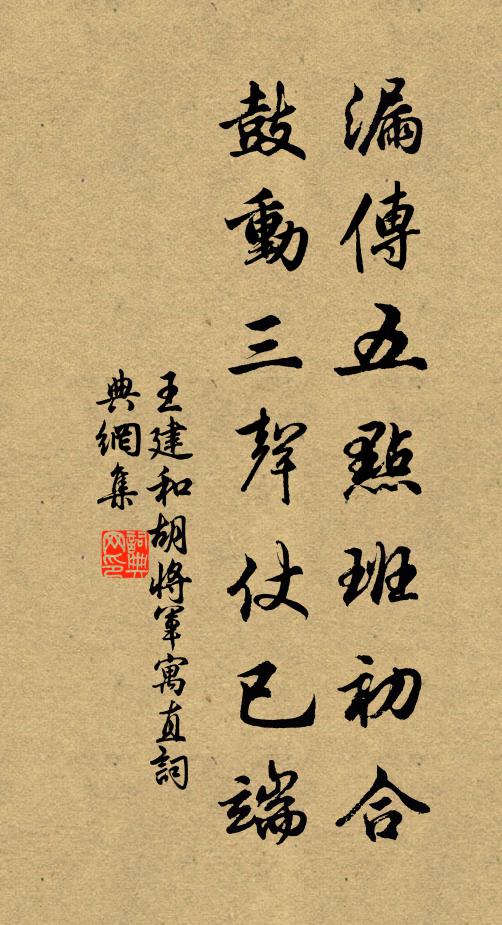 漏傳五點班初合
鼓動三聲仗已端
王建和胡將軍寓直詞
典網集
詞典
网印